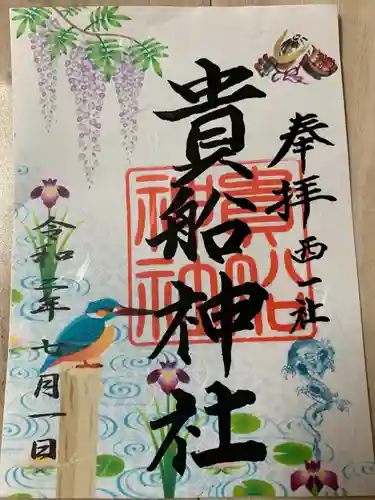 奉拝 西一社
貴船神社
貴船
神社
令和三年七月一日